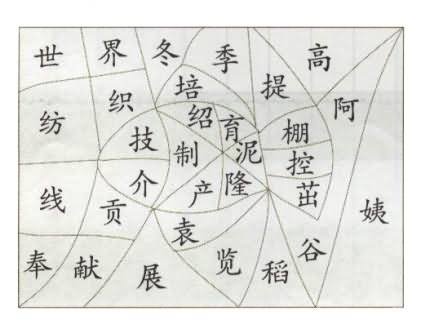 世界冬季高
培提阿
纺织绍育
技棚
制泥控
介产隆茁
线贡姨
袁
奉献展览稻谷